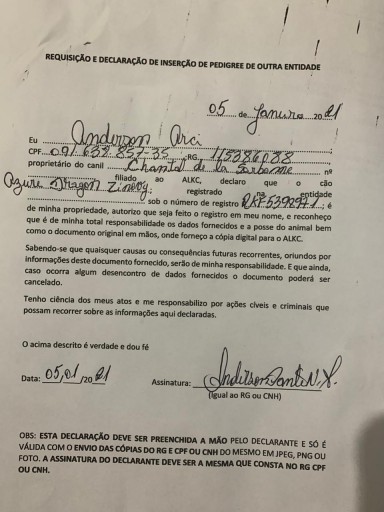 REQUISIÇÃO E DECLARAÇÃO DE INSERÇÃO DE PEDIGREE DE OUTRA ENTIDADE
05 de Janeiro 2021
Eu Anderson Arci
CPF 091.638.857-35 RG 115386088
proprietário do canil Chantal de la Sorbonne nº
filiado ao ALKC, declaro que o cão
Azure Dragon registrado na entidade
sob o número de registro ; é
de minha propriedade, autorizo que seja feito o registro em meu nome, e reconheço
que é de minha total responsabilidade os dados fornecidos e a posse do animal bem
como o documento original em mãos, onde forneço a cópia digital para o ALKC.
Sabendo-se que quaisquer causas ou consequências futuras recorrentes, oriundos por
informações deste documento fornecido, serão de minha responsabilidade. E que ainda,
caso ocorra algum desencontro de dados fornecidos o documento poderá ser
cancelado.
Tenho ciência dos meus atos e me responsabilizo por ações cíveis e criminais que
possam recorrer sobre as informações aqui declaradas.
O acima descrito é verdade e dou fé
Data: 05/01/2021 Assinatura: Anderson
(Igual ao RG ou CNH)
OBS: ESTA DECLARAÇÃO DEVE SER PREENCHIDA A MÃO PELO DECLARANTE E SÓ É
VÁLIDA COM O ENVIO DAS CÓPIAS DO RG E CPF OU CNH DO MESMO EM JPEG, PNG OU
FOTO. A ASSINATURA DO DECLARANTE DEVE SER A MESMA QUE CONSTA NO RG CPF
OU CNH.